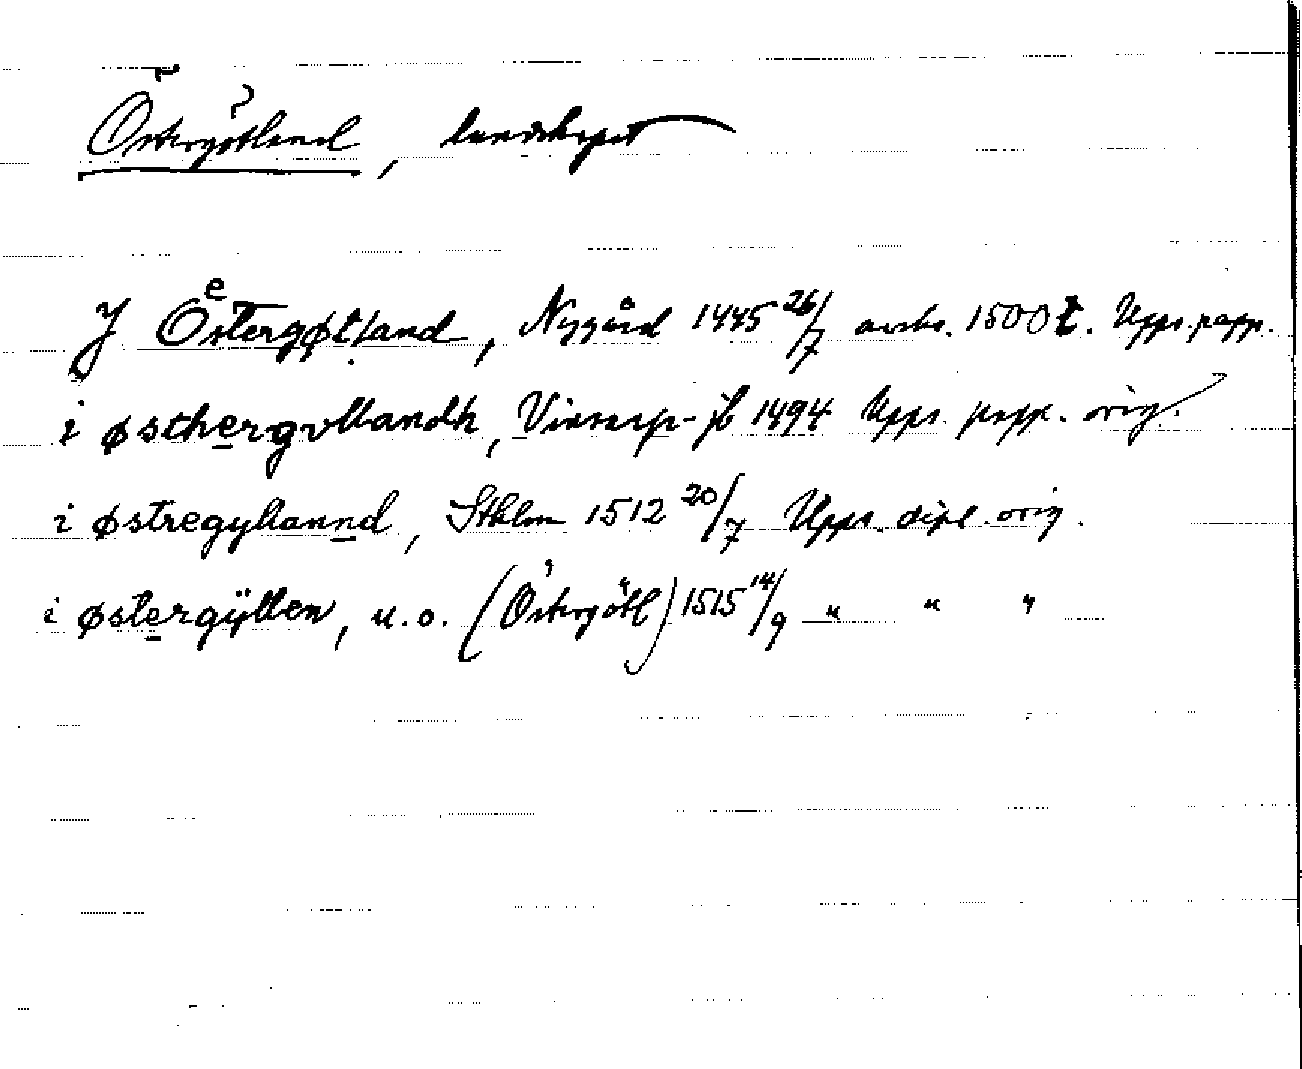 Östergötland, landskapet
J Oͤstergøtland, Nygård 1445 26/7 avskr. 1500t. Upps. papp.
i østhergvllandh, Vinstorp-jb 1494 Upps. papp. orig.
i østregyllannd, Sthlm 1512 20/7 Upps. dipl. orig.
i østergÿllen, u.o. (Östergötl) 1515 14/9 " " "